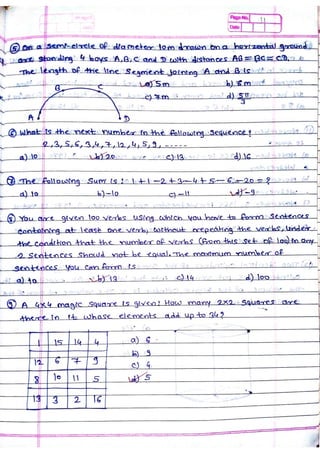 Page No. 11
Date
⑤ On a semi-circle of diameter 10m drawn on a horizontal ground
are standing 4 boys A, B, C and D with distances AB = BC = CD.
The length of the line segment joining A and B is
a) 5m b) 8m
c) 7m d) 5π/3
B C
A D
⑥ What is the next number in the following sequence?
2,3,5,6,3,4,7,12,4,5,9,.....
a) 10 b) 20 c) 13 d) 16
⑦ The following Sum is : 1+1-2+3-4+5-6...-20 = ?
a) 10 b) -10 c) -11 d) -9
⑧ You are given 100 verbs using which you have to form sentences
containing at lease one verb, without repeating the verbs, under
the condition that the number of verbs (from this set of 100) in any
2 sentences should not be equal. The maximum number of
sentences you can form is
a) 10 b) 13 c) 14 d) 100
⑨ A 4x4 magic Square is given: How many 2x2 Squares are
there in it whose elements add up to 34?
1 15 14 4 a) 6
12 6 7 9 b) 9
8 10 11 5 c) 4
13 3 2 16 d) 5